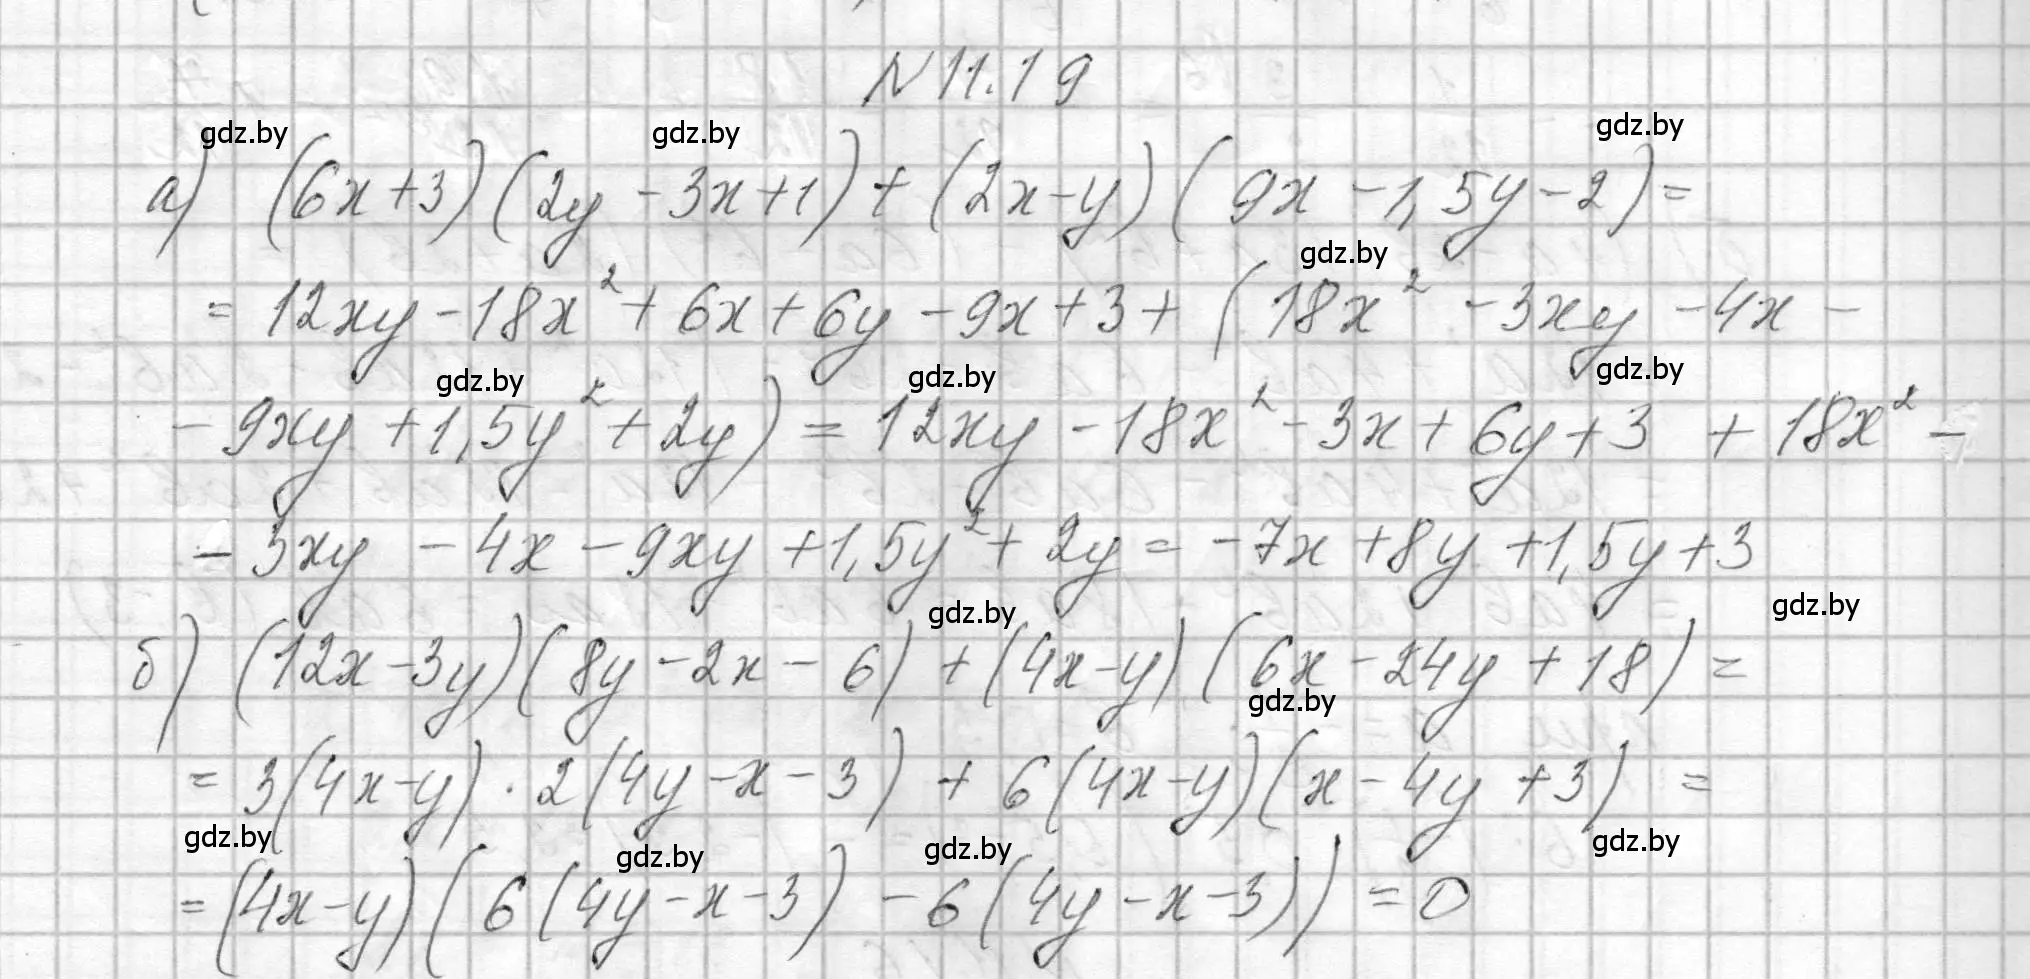 N 11.19
gdz.by gdz.by gdz.by
а) (6x+3)(2y-3x+1)+(2x-y)(9x-1,5y-2)=
gdz.by
= 12xy-18x²+6x+6y-9x+3+(18x²-3xy-4x-
gdz.by gdz.by gdz.by
-9xy+1,5y²+2y)=12xy-18x²-3x+6y+3+18x²-
-3xy-4x-9xy+1,5y²+2y=-7x+8y+1,5y+3
gdz.by gdz.by
б) (12x-3y)(8y-2x-6)+(4x-y)(6x-24y+18)=
gdz.by
=3(4x-y)·2(4y-x-3)+6(4x-y)(x-4y+3)=
gdz.by gdz.by gdz.by gdz.by
=(4x-y)(6(4y-x-3)-6(4y-x-3))=0